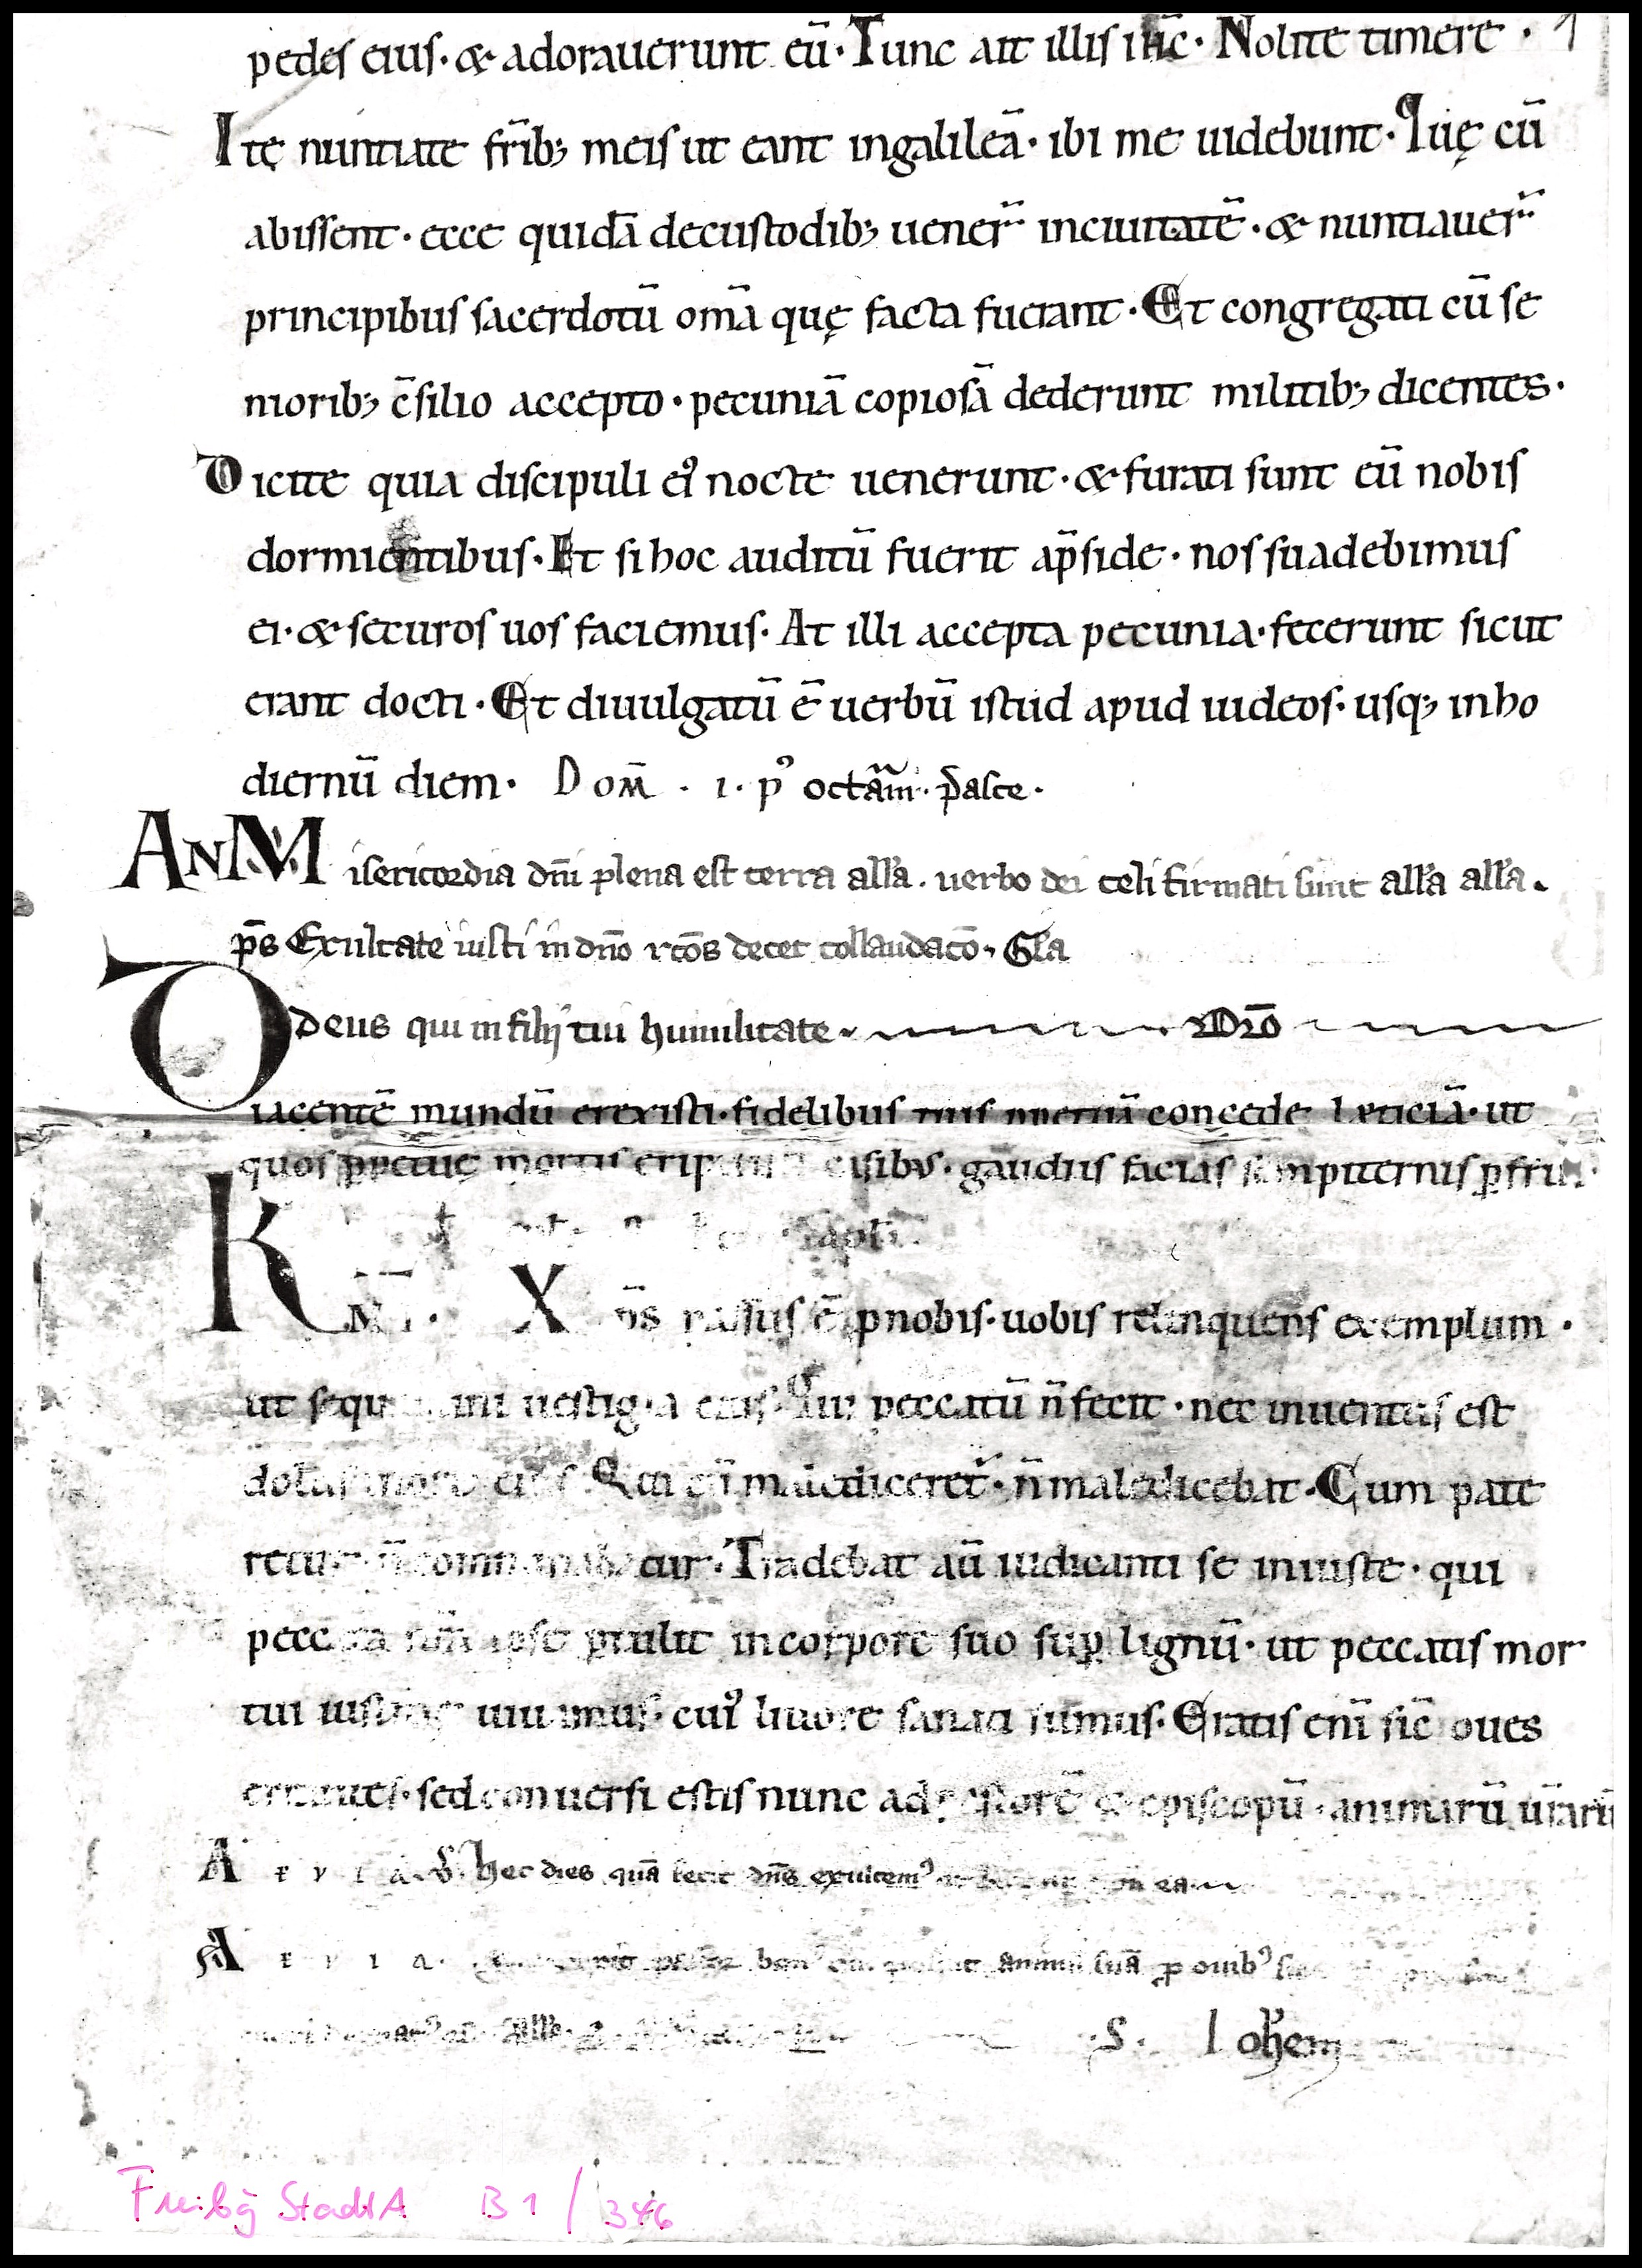 pedes eius· & adorauerunt eū· Tunc ait illis · Nolite timere · 1
Itę nuntiate fr̄ib; meis ut eant ingalileā· ibi me uidebunt· Quę cū
abissent· ecce quidā decustodib; uener̄ inciuitatē· & nuntiauer̄
principibus sacerdotū om̄a quę facta fuerant· Et congregati cū se
niorib; c̄silio accepto· pecuniā copiosā dederunt militib; dicentes·
Dicite quia discipuli eiꝰ nocte uenerunt· & furati sunt eū nobis
dormientibus· Et si hoc auditū fuerit ap̄side· nos suadebimus
ei· & securos uos faciemus· At illi accepta pecunia· fecerunt sicut
erant docti· Et diuulgatū ē uerbū istud apud iudeos· usq; inho
diernū diem· Dom̄ · 1· pꝰ octām· pasce·
AN Misericordia dn̄i plena est terra all'a· uerbo dei celi firmati sunt all'a all'a·
p̄s Exultate iusti in dn̄o rc̄os decet collaudac̄o· Gl̄a
Deus qui in filij tui humilitate· Or̄o
iacentē mundū erexisti· fidelibus tuis concede lęticiā· ut
quos ꝑpetuę mortis casibus· gaudiis facias sempiternis ꝑfrui·
K
X p̄s passus ē ꝓ nobis· uobis relinquens exemplum·
ut uestigia eius· Qui peccatū n̄ fecit· nec inuentus est
dolus Qui cū malediceret᷑· n̄ maledicebat· Cum pate
tur· Tradebat aū iudicanti se iniuste· qui
ipse ꝑtulit in corpore suo suꝑ lignū· ut peccatis mor
tui uiuamus· cuiꝰ liuore sanati sumus· Eratis enī sic̄ oues
errantes· sed conuersi estis nunc ad pastorē & episcopū· animarū ur̄arū
A e v i a· Hec dies quā fecit dn̄s exultemꝰ ea
A e v i a· bonꝰ animā suā ꝓ ouibꝰ
·S·
Freibg StadtA B 1 / 346